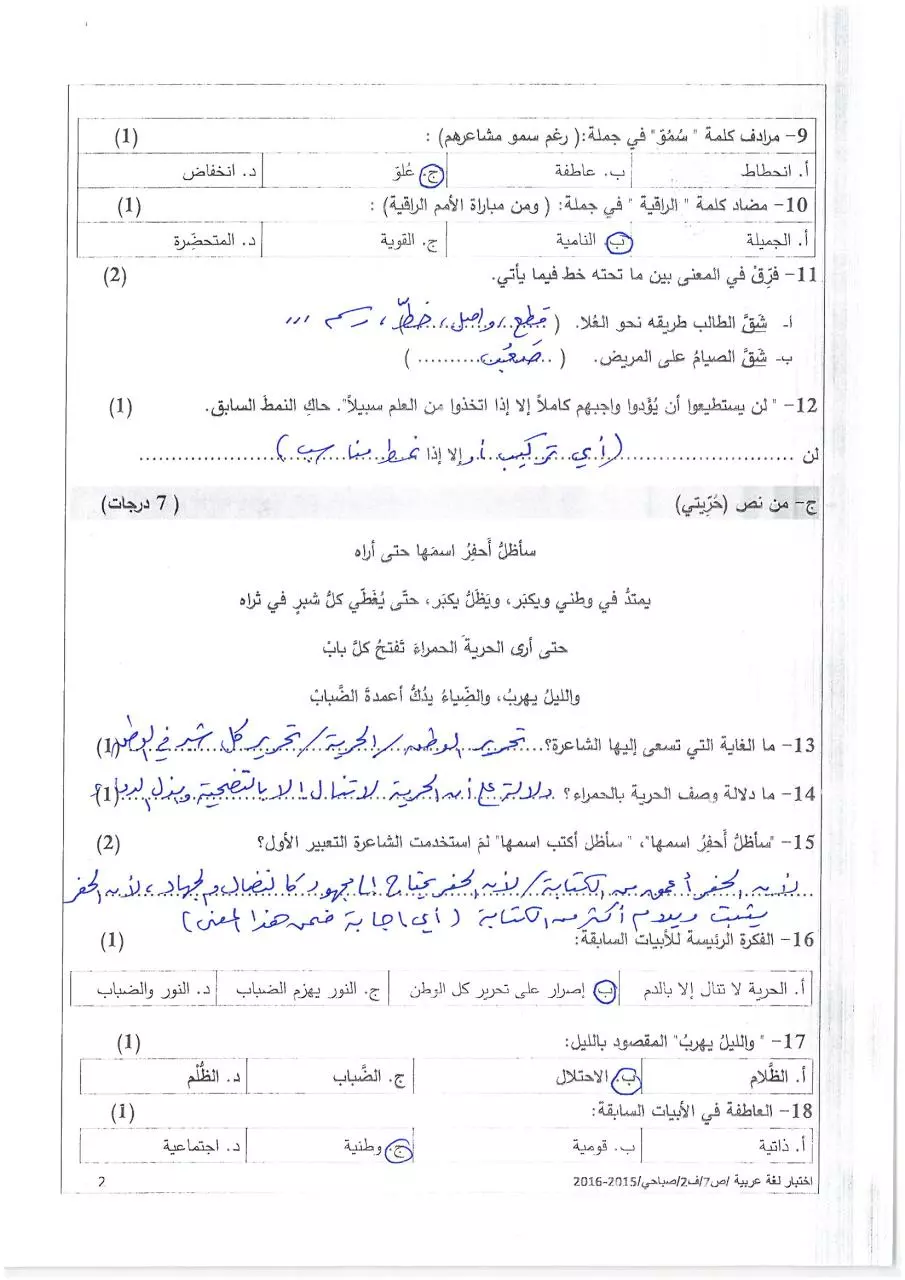 9- مرادف كلمة " سُمُوّ" في جملة:( رغم سمو مشاعرهم) : (1)
أ. انحطاط ب. عاطفة ج. عُلوّ د. انخفاض
10- مضاد كلمة " الراقية " في جملة: ( ومن مباراة الأمم الراقية) : (1)
أ. الجميلة ب. النامية ج. القوية د. المتحضِّرة
11- فرِّقْ في المعنى بين ما تحته خط فيما يأتي. (2)
أ- شَقَّ الطالب طريقه نحو العُلا. ( قطع، واصل، خطّ، رسم ،،، )
ب- شَقَّ الصيامُ على المريض. ( ..صَعُبَ.......... )
12- " لن يستطيعوا أن يُؤَدوا واجبهم كاملاً إلا إذا اتخذوا من العلم سبيلاً". حاكِ النمطَ السابق. (1)
لن ........................ (أي تركيب أو إلا إذا نمط مناسب) ....................
ج- من نص (حُرِّيتي) ( 7 درجات)
سأظلُ أَحفِرُ اسمَها حتى أراه
يمتدُّ في وطني ويكبَر، ويَظَلُ يكبَر، حتّى يُغَطّي كلُّ شبرٍ في ثراه
حتى أرى الحريةَ الحمراءَ تَفتحُ كلَّ بابْ
والليلُ يهربُ، والضِّياءُ يدُكُّ أعمدةَ الضَّبابْ
13- ما الغاية التي تسعى إليها الشاعرة؟ تحرير الوطن / الحرية / تحرير كل شبر في الوطن (1)
14- ما دلالة وصف الحرية بالحمراء؟ دلالة على أن الحرية لا تنال إلا بالتضحية وبذل الدماء (1)
15- "سأظلُ أَحفِرُ اسمها"، " سأظل أكتب اسمها" لمَ استخدمت الشاعرة التعبير الأول؟ (2)
لأن الحفر أعمق من الكتابة / لأن الحفر يحتاج إلى مجهود كالنضال والجهاد، لأن الحفر
يثبت ويدوم أكثر من الكتابة (أي اجابة ضمن هذا المعنى)
16- الفكرة الرئيسة للأبيات السابقة: (1)
أ. الحرية لا تنال إلا بالدم ب. إصرار على تحرير كل الوطن ج. النور يهزم الضباب د. النور والضباب
17- " والليلُ يهربُ" المقصود بالليل: (1)
أ. الظَّلام ب. الاحتلال ج. الضَّباب د. الظُّلْم
18- العاطفة في الأبيات السابقة: (1)
أ. ذاتية ب. قومية ج. وطنية د. اجتماعية
اختبار لغة عربية /ص7/ف2/صباحي/2015-2016 2